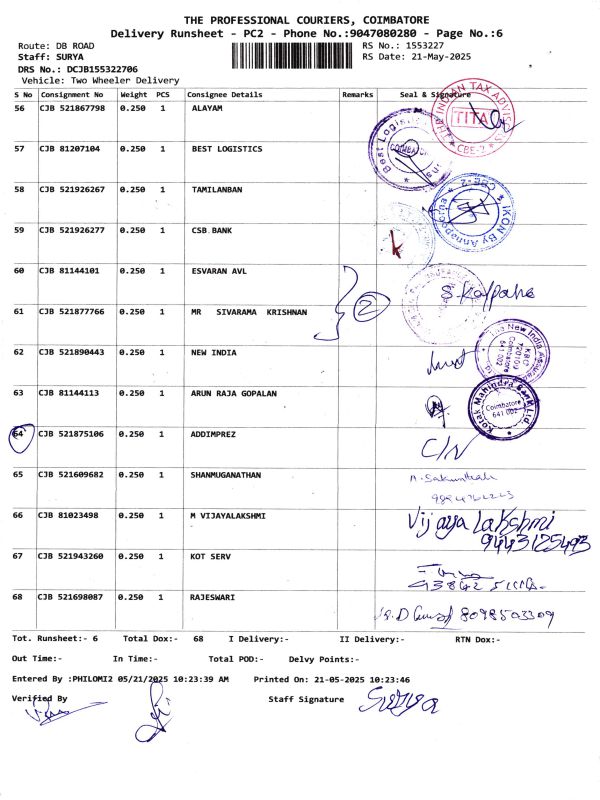 THE PROFESSIONAL COURIERS, COIMBATORE
Delivery Runsheet - PC2 - Phone No.:9047080280 - Page No.:6
Route: DB ROAD
RS No.: 1553227
Staff: SURYA
RS Date: 21-May-2025
DRS No.: DCJB155322706
Vehicle: Two Wheeler Delivery
S No Consignment No Weight PCS Consignee Details Remarks Seal & Signature
56 CJB 521867798 0.250 1 ALAYAM
57 CJB 81207104 0.250 1 BEST LOGISTICS
58 CJB 521926267 0.250 1 TAMILANBAN
59 CJB 521926277 0.250 1 CSB BANK
60 CJB 81144101 0.250 1 ESVARAN AVL
2 S. Kalpana
61 CJB 521877766 0.250 1 MR SIVARAMA KRISHNAN
62 CJB 521890443 0.250 1 NEW INDIA
63 CJB 81144113 0.250 1 ARUN RAJA GOPALAN
Kotak Mahindra Bank Ltd.
Coimbatore
641 002
64 CJB 521875106 0.250 1 ADDIMPREZ
C/N
65 CJB 521609682 0.250 1 SHANMUGANATHAN
66 CJB 81023498 0.250 1 M VIJAYALAKSHMI
Vijaya Lakshmi
9443125493
67 CJB 521943260 0.250 1 KOT SERV
68 CJB 521698087 0.250 1 RAJESWARI
8098503309
Tot. Runsheet:- 6 Total Dox:- 68 I Delivery:- II Delivery:- RTN Dox:-
Out Time:- In Time:- Total POD:- Delvy Points:-
Entered By :PHILOMI2 05/21/2025 10:23:39 AM Printed On: 21-05-2025 10:23:46
Verified By Staff Signature Surya